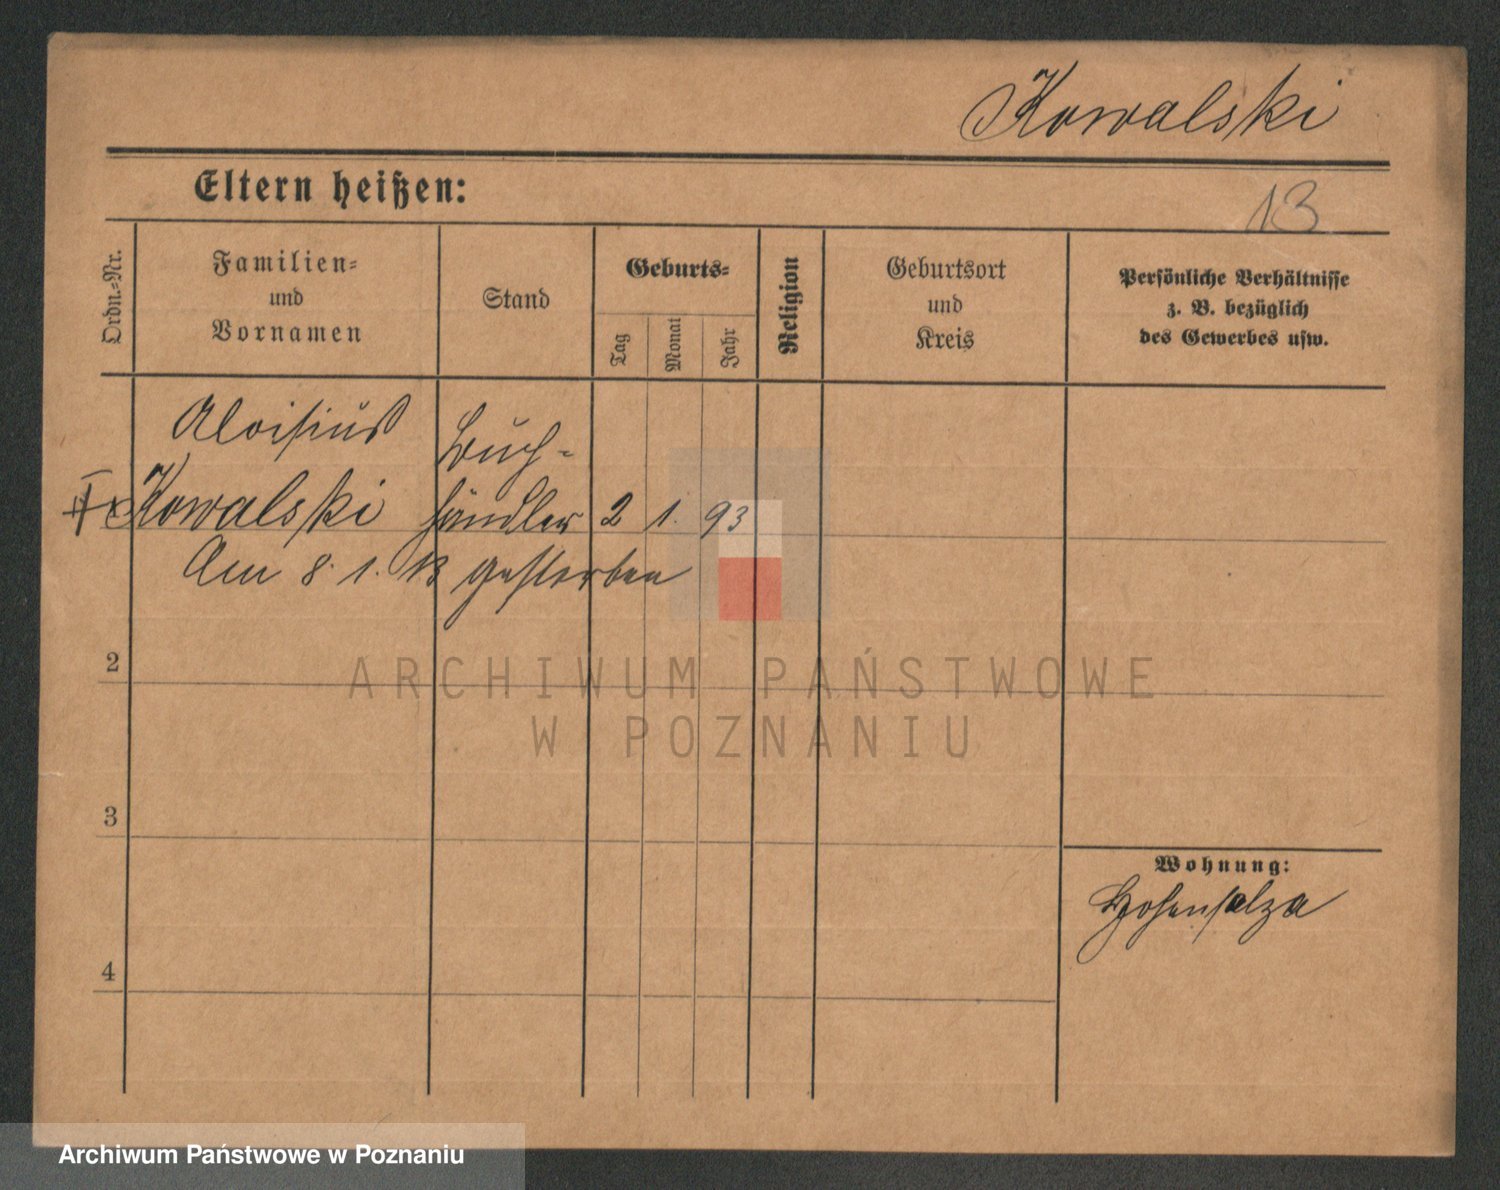 Kowalski
Eltern heißen:
13
Ordn.=Nr.
Familien=
und
Vornamen
Stand
Geburts=
Tag
Monat
Jahr
Religion
Geburtsort
und
Kreis
Persönliche Verhältnisse
z. B. bezüglich
des Gewerbes usw.
Aloisius Buch-
Kowalski händler 2 1. 93
Am 8. 1. 13 gestorben
2
3
4
Wohnung:
Hohensalza
ARCHIWUM PAŃSTWOWE
W POZNANIU
Archiwum Państwowe w Poznaniu